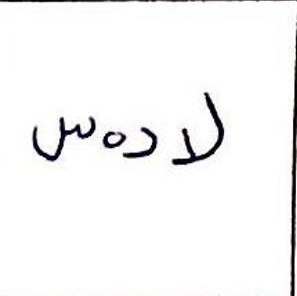 لادەس